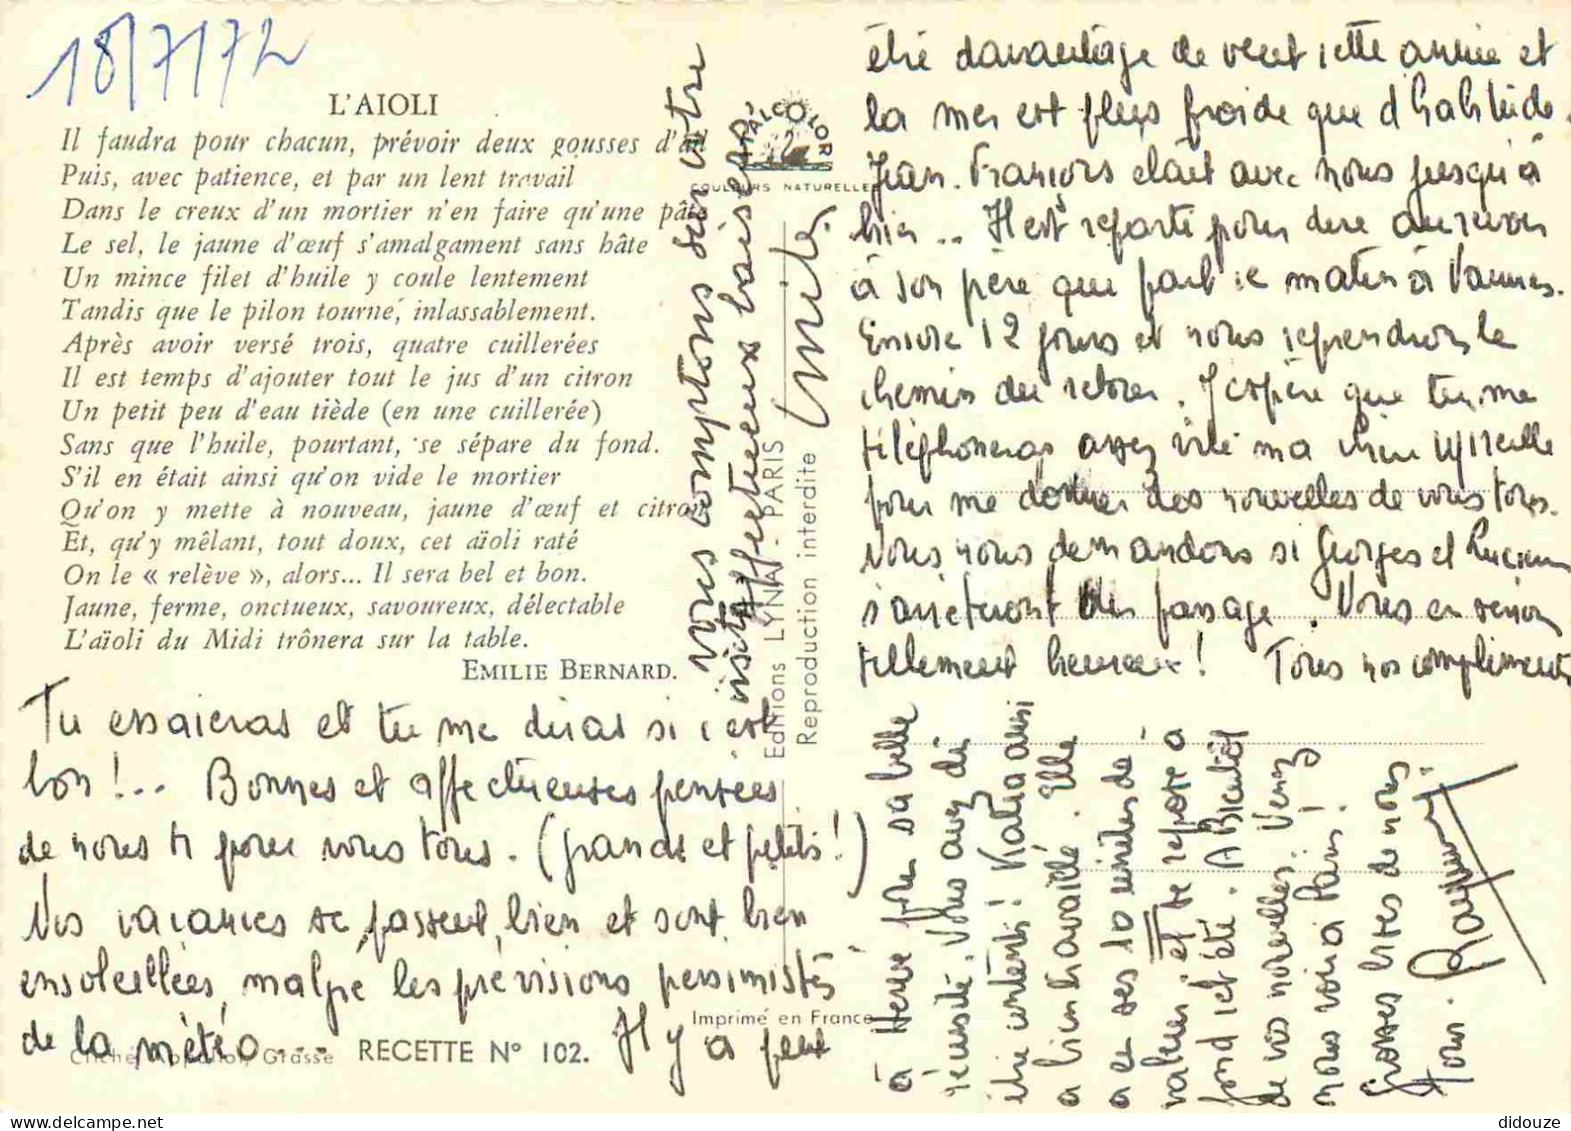 18/7/72
L'AIOLI
Il faudra pour chacun, prévoir deux gousses d'ail
Puis, avec patience, et par un lent travail
Dans le creux d'un mortier n'en faire qu'une pâte
Le sel, le jaune d'œuf s'amalgament sans hâte
Un mince filet d'huile y coule lentement
Tandis que le pilon tourne, inlassablement.
Après avoir versé trois, quatre cuillerées
Il est temps d'ajouter tout le jus d'un citron
Un petit peu d'eau tiède (en une cuillerée)
Sans que l'huile, pourtant, se sépare du fond.
S'il en était ainsi qu'on vide le mortier
Qu'on y mette à nouveau, jaune d'œuf et citron
Et, qu'y mêlant, tout doux, cet aïoli raté
On le « relève », alors... Il sera bel et bon.
Jaune, ferme, onctueux, savoureux, délectable
L'aïoli du Midi trônera sur la table.
EMILIE BERNARD.
Tu essaieras et tu me diras si c'est
bon !... Bonnes et affectueuses pensées
de nous tr pour vous tous. (grands et petits !)
Nos vacances se passent bien et sont bien
ensoleillées, malgré les prévisions pessimistes
de la météo....  Il y a peut
Cliché Appollot, Grasse
RECETTE N° 102.
Imprimé en France
être davantage de vent cette année et
la mer est plus froide que d'habitude.
Jean-François était avec nous jusqu'à
hier... Il est reparti pour dire au revoir
à son père que part ce matin à Vannes.
Encore 12 jours et nous reprendrons le
chemin du retour. J'espère que tu me
téléphoneras assez vite ma chère Mireille
pour me donner des nouvelles de vous tous.
Nous nous demandons si Georges et Lucienne
s'arrêteront au passage. Nous en serions
tellement heureux ! Tous nos compliments
à Herve pour sa belle
réussite. Vous avez dû
être contents ! Katia aussi
a bien travaillé. Elle
a eu ses 10 unités de
valeur et se repose à
fond cet été. A Bientôt
de vos nouvelles. Venez
nous voir à Paris !
Grosses bises de nous
tous. Raymond
Nous comptons sur votre
visite. Affectueux baisers.
ITALCOLOR
COULEURS NATURELLES
Editions LYNA - PARIS
Reproduction interdite
didouze